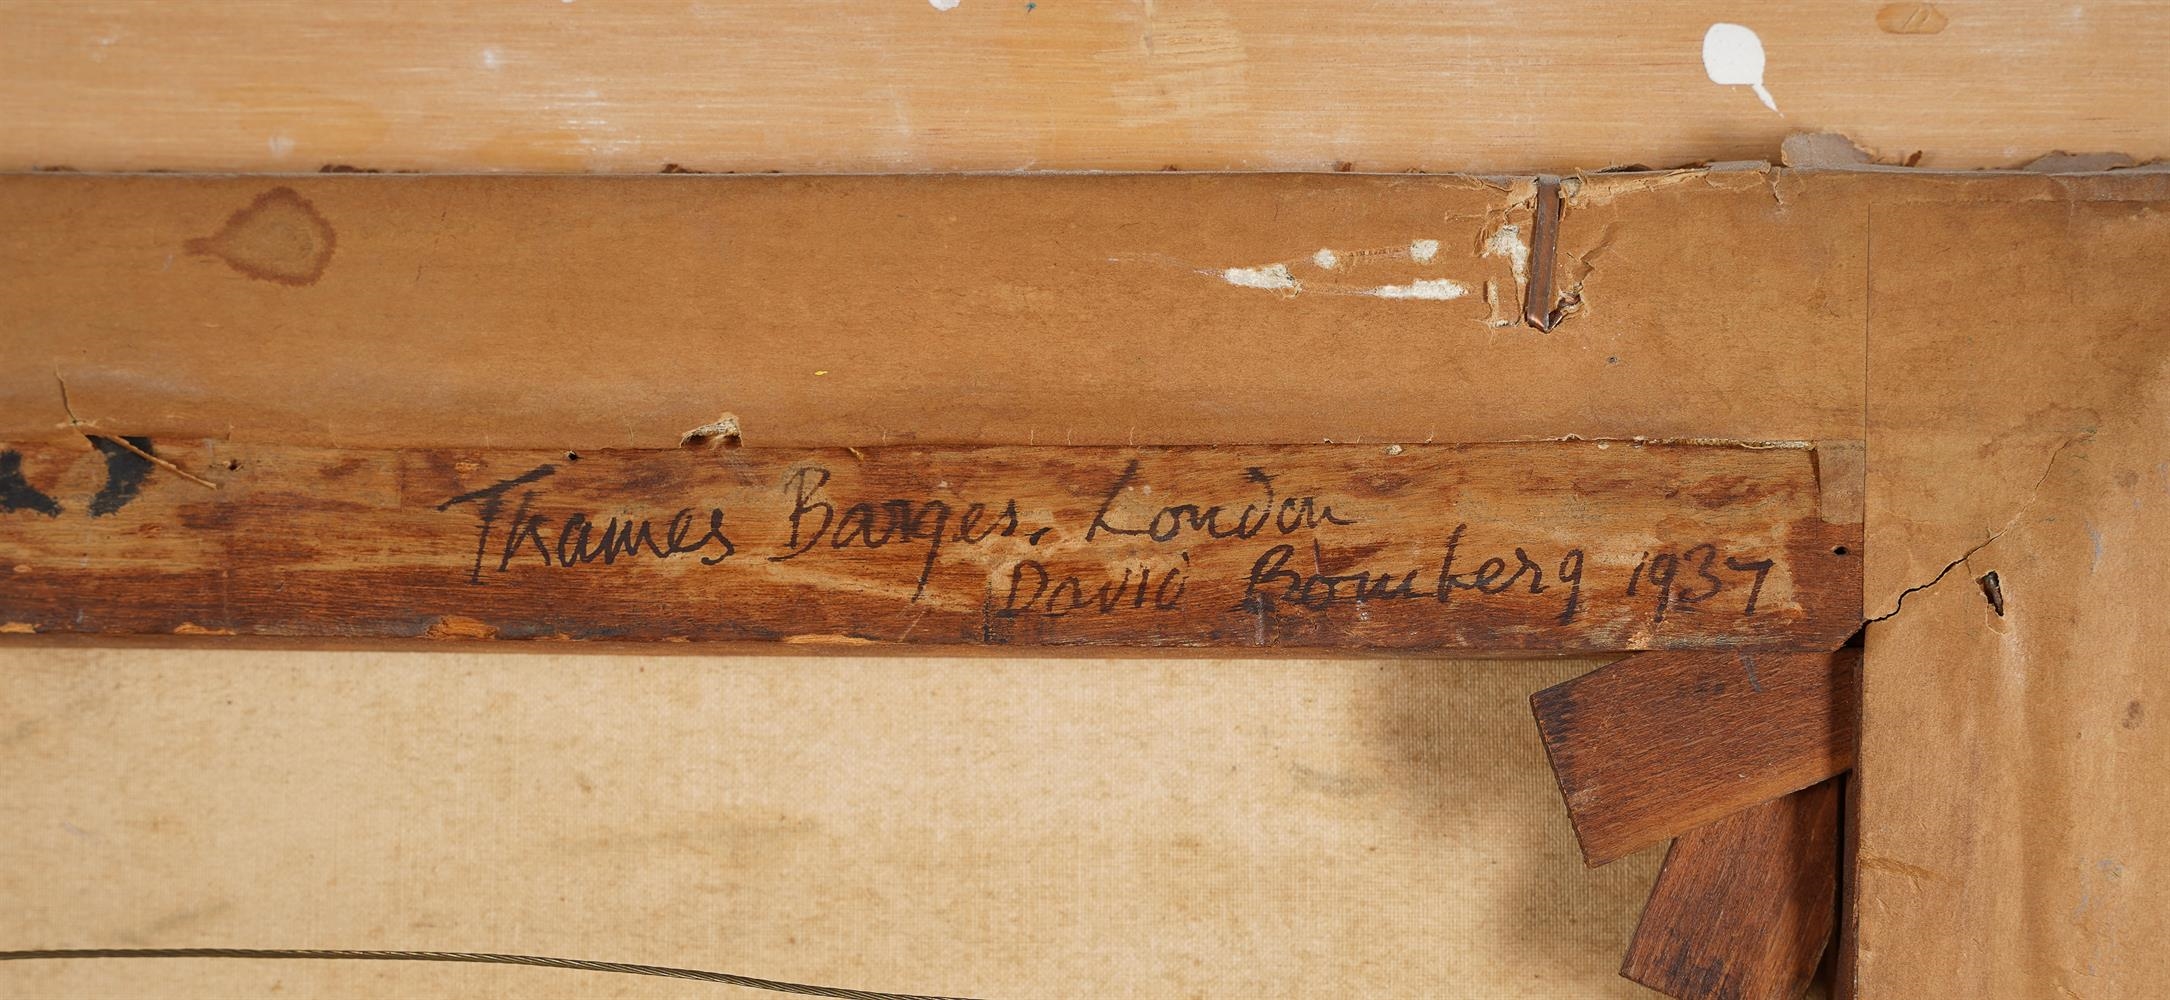 Thames Barges. London
David Bomberg 1937